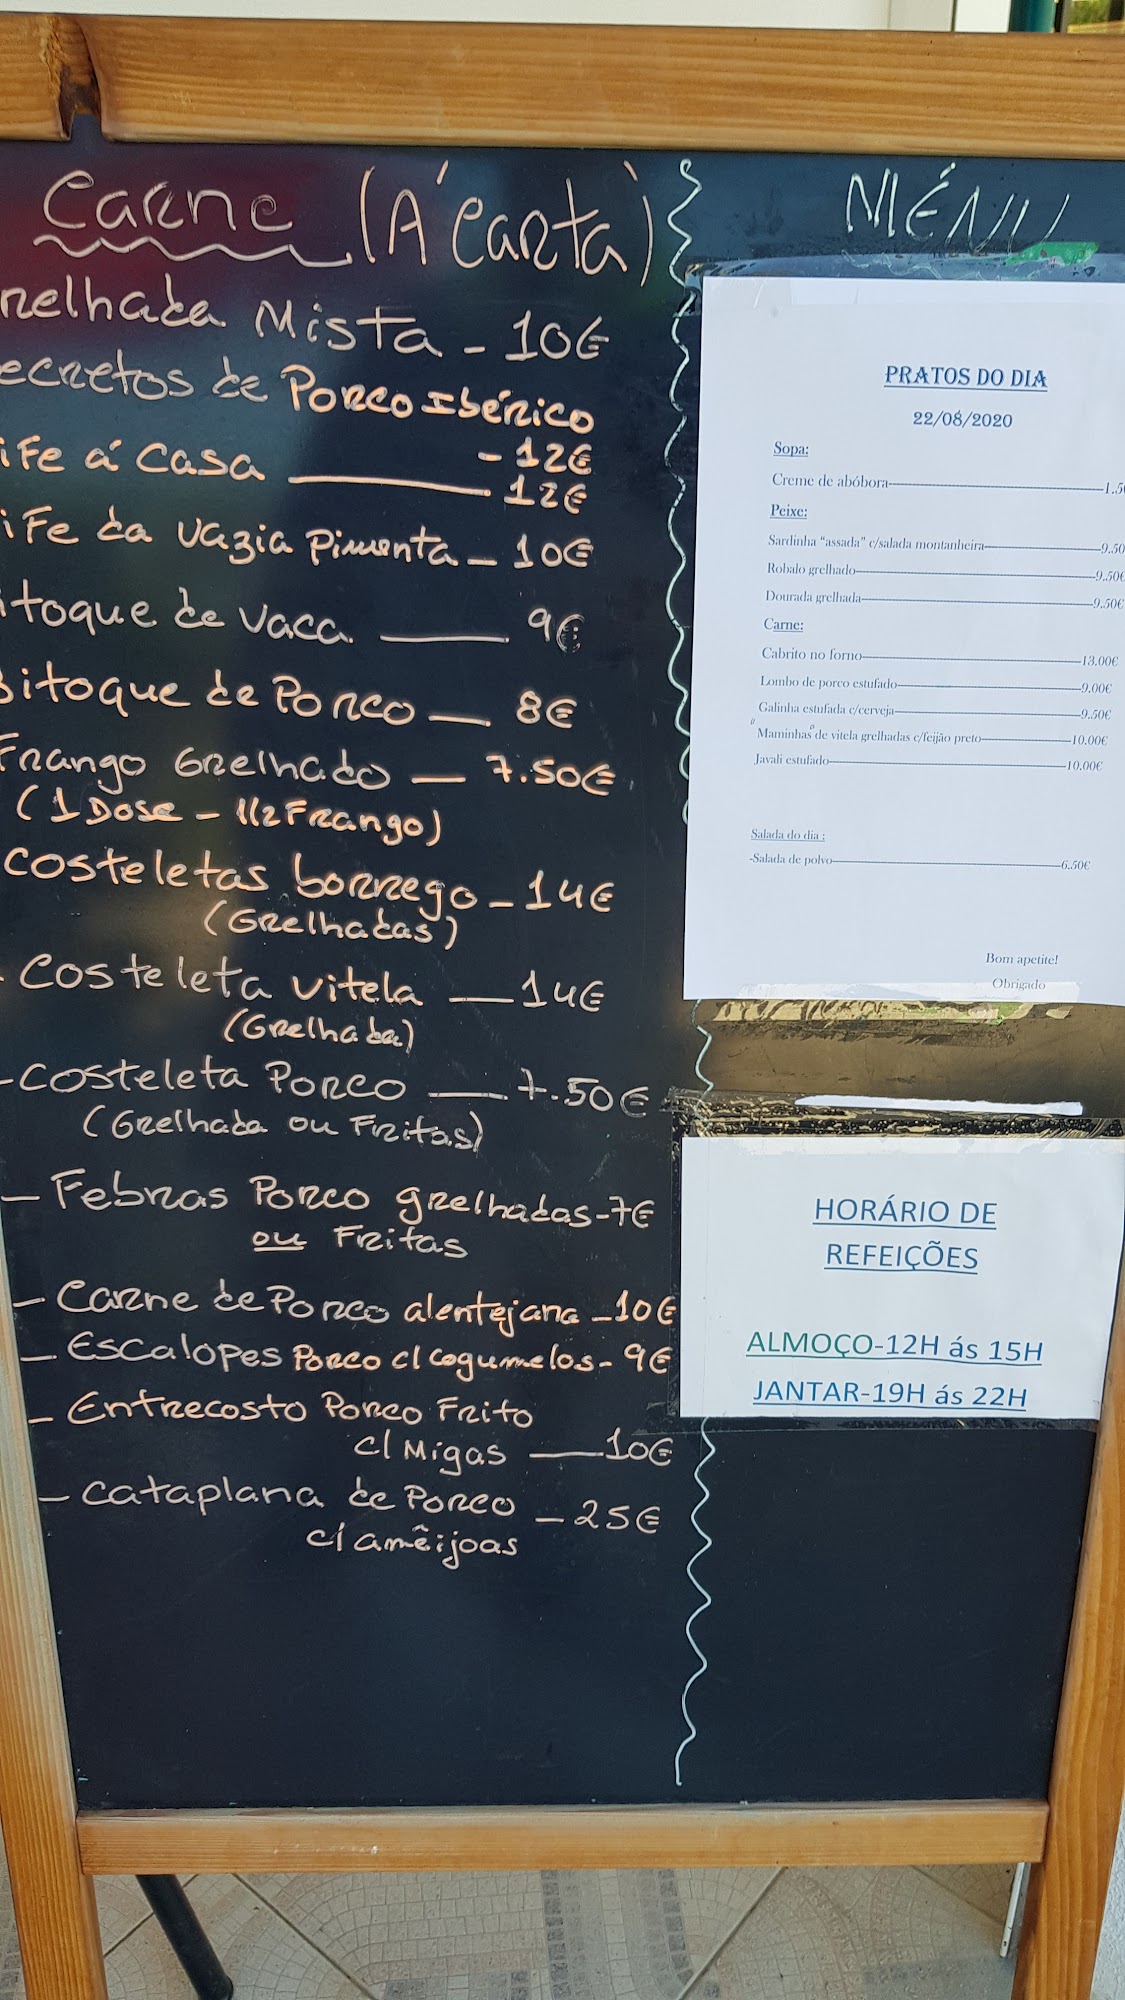 Carne (Á Carta)
relhada Mista - 10€
ecretos de Porco Ibérico
- 12€
ife á Casa ——— 12€
ife da Vazia Pimenta - 10€
itoque de Vaca —— 9€
Bitoque de Porco — 8€
Frango Grelhado — 7.50€
(1 Dose - 1/2 Frango)
Costeletas borrego - 14€
(Grelhadas)
- Costeleta Vitela — 14€
(Grelhada)
- Costeleta Porco — 7.50€
(Grelhada ou Fritas)
- Febras Porco grelhadas - 7€
ou Fritas
- Carne de Porco alentejana - 10€
- Escalopes Porco c/ cogumelos - 9€
- Entrecosto Porco Frito
c/ Migas —— 10€
- Cataplana de Porco - 25€
c/ amêijoas
MÉNU
PRATOS DO DIA
22/08/2020
Sopa:
Creme de abóbora—1.5
Peixe:
Sardinha "assada" c/salada montanheira—9.50
Robalo grelhado—9.50€
Dourada grelhada—9.50€
Carne:
Cabrito no forno—13.00€
Lombo de porco estufado—9.00€
Galinha estufada c/cerveja—9.50€
Maminhas de vitela grelhadas c/feijão preto—10.00€
Javali estufado—10.00€
Salada do dia :
-Salada de polvo—6.50€
Bom apetite!
Obrigado
HORÁRIO DE
REFEIÇÕES
ALMOÇO-12H ás 15H
JANTAR-19H ás 22H